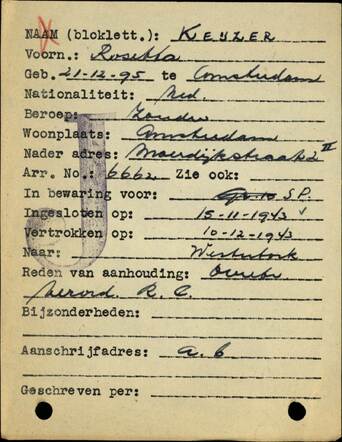 NAAM (bloklett.): KEYZER
Voorn.: Rosetta
Geb. 21-12-95 te Amsterdam
Nationaliteit: Ned.
Beroep: Zonder
Woonplaats: Amsterdam
Nader adres: Moerdijkstraat 2 II
Arr. No.: 6662 Zie ook:
In bewaring voor: S.P.
Ingesloten op: 15-11-1943
Vertrokken op: 10-12-1943
Naar: Westerbork
Reden van aanhouding: Overtr.
verord. R.C.
Bijzonderheden:
Aanschrijfadres: a.b
Geschreven per:
J